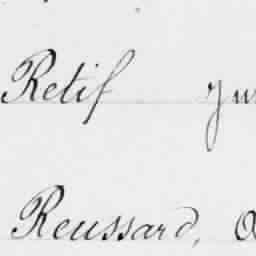 Retif
Reussard,